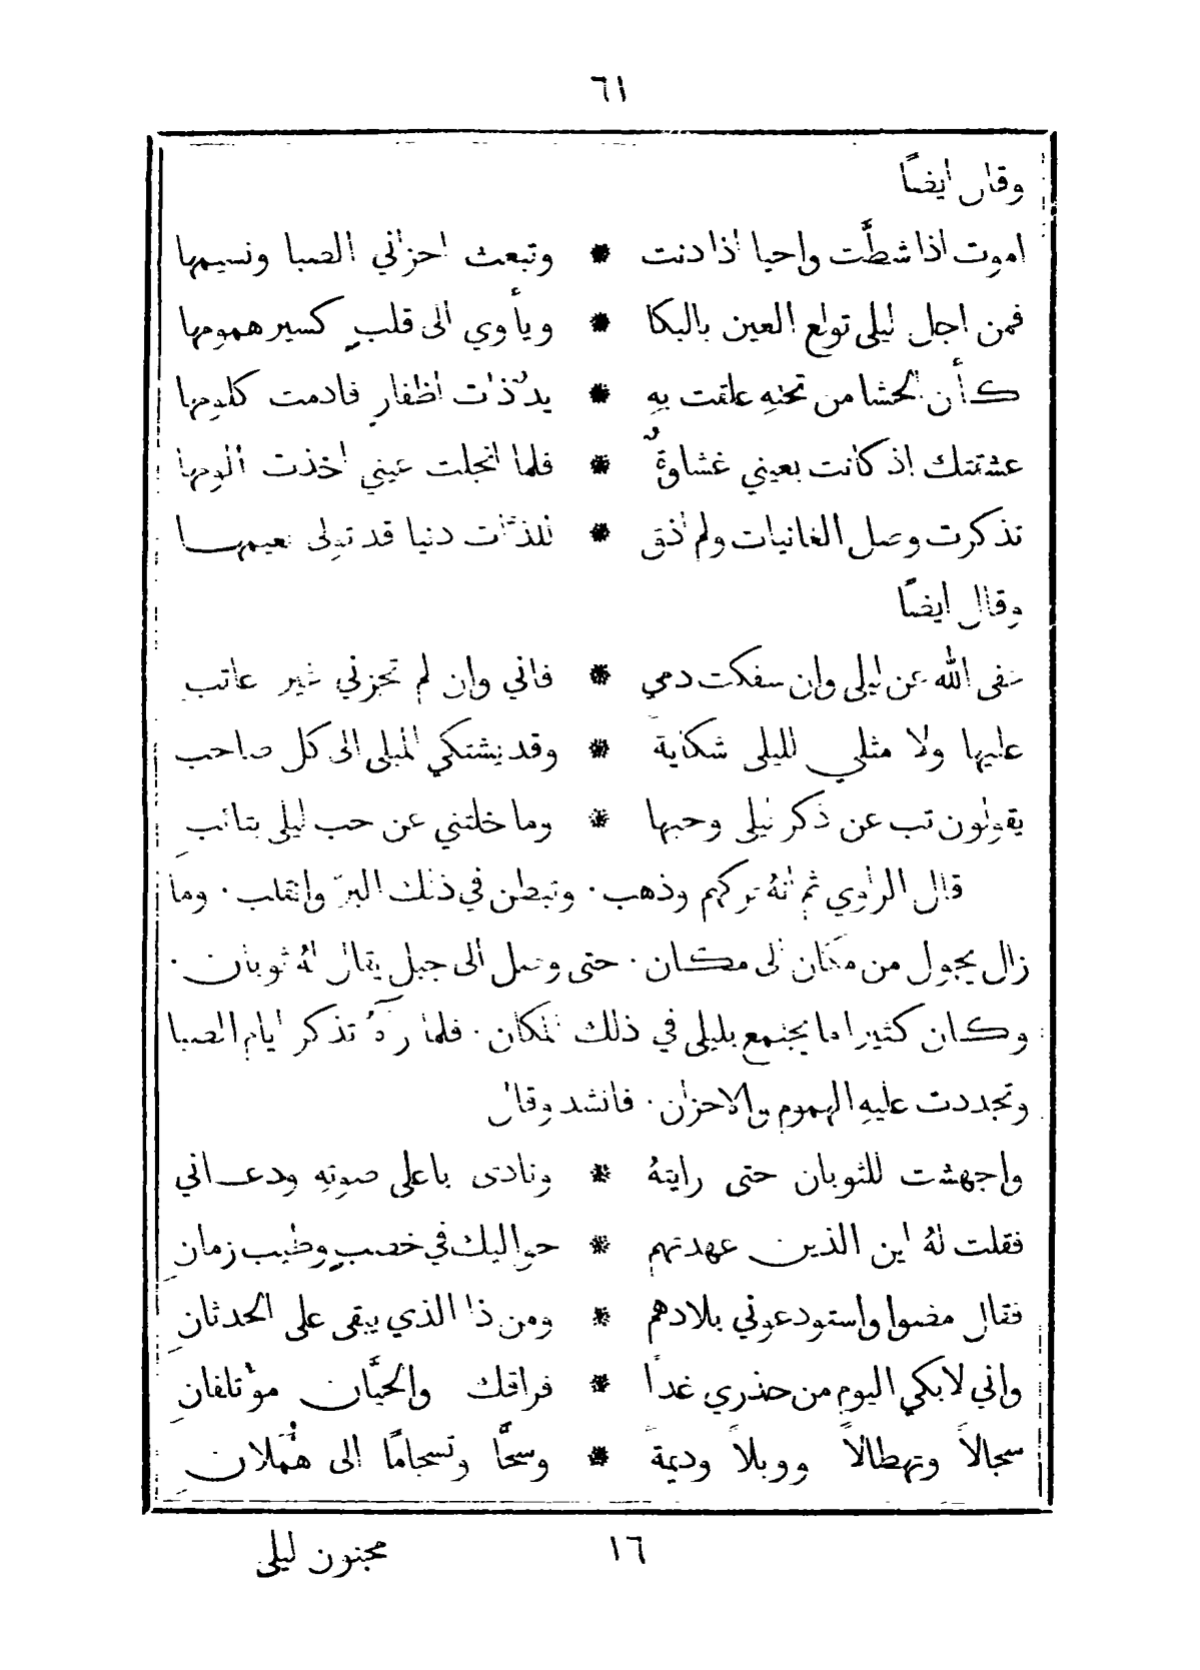 ٦١
وقال ايضاً
اموت اذا شطَّت واحيا اذا دنت * وتبعث احزاني الصبا ونسيمها
فمن اجل ليلى تولع العين بالبكا * ويأوي الى قلبٍ كسير همومها
كأن الحشا من تحتهِ علقت بهِ * يدٌ ذات اظفارٍ فادمت كلومها
عشقتك اذ كانت بعيني غشاوةٌ * فلما انجلت عيني اخذت الومها
تذكرت وصل الغانيات ولم اذق * للذَّات دنيا قد تولى نعيمها
وقال ايضاً
عفى الله عن ليلى وان سفكت دمي * فاني وان لم تجزني غير عاتبِ
عليها ولا مثلي لليلى شكايةً * وقد يشتكي المبلى الى كل صاحب
يقولون تب عن ذكر ليلى وحبها * وما خلتني عن حب ليلى بتائبِ
قال الراوي ثم انهُ تركهم وذهب . وتبطن في ذلك البرّ وانقلب . وما
زال يجول من مكان الى مكان . حتى وصل الى جبل يقال لهُ ثوبان .
وكان كثيرا ما يجتمع بليلى في ذلك المكان . فلما رآهُ تذكر ايام الصبا
وتجددت عليهِ الهموم والاحزان . فانشد وقال
واجهشت للثوبان حتى رايتهُ * ونادى باعلى صوتهِ ودعاني
فقلت لهُ اين الذين عهدتهم * حواليك في خصبٍ وطيب زمانِ
فقال مضوا واستودعوني بلادهم * ومن ذا الذي يبقى على الحدثانِ
واني لابكي اليوم من حذري غداً * فراقك والحيَّان مؤتلفانِ
سجالاً وتهطالاً ووبلاً وديمةً * وسحًّا وتسجاماً الى هُمَّلانِ
١٦
مجنون ليلى